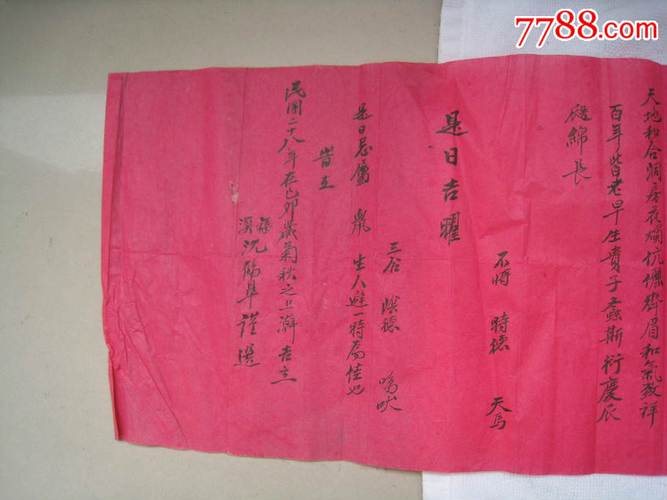 7788.com
天地和合洞房花燭伉儷齊眉和氣致祥
百年皆老早生貴子螽斯衍慶瓜
瓞綿長
不將 時德 天馬
是日吉曜
三合 陰德 鳴吠
是日忌屬鼠生人避一時為佳也
皆立
民國二十八年在己卯歲菊秋之上澣吉立
沈 謹選